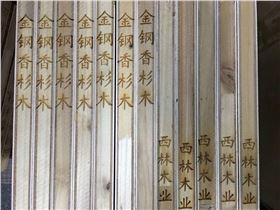 金钢香杉木
金钢香杉木
金钢香杉木
金钢香杉木
金钢香杉木
金钢香杉木
金钢香杉木
西林木业
西林木业
西林木业
西林木业
西林木业